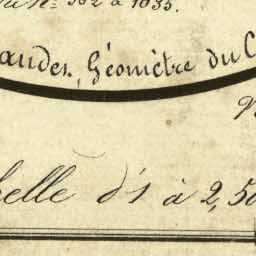 582 à 1635.
andes, Géomètre du C
helle d's à 2,50